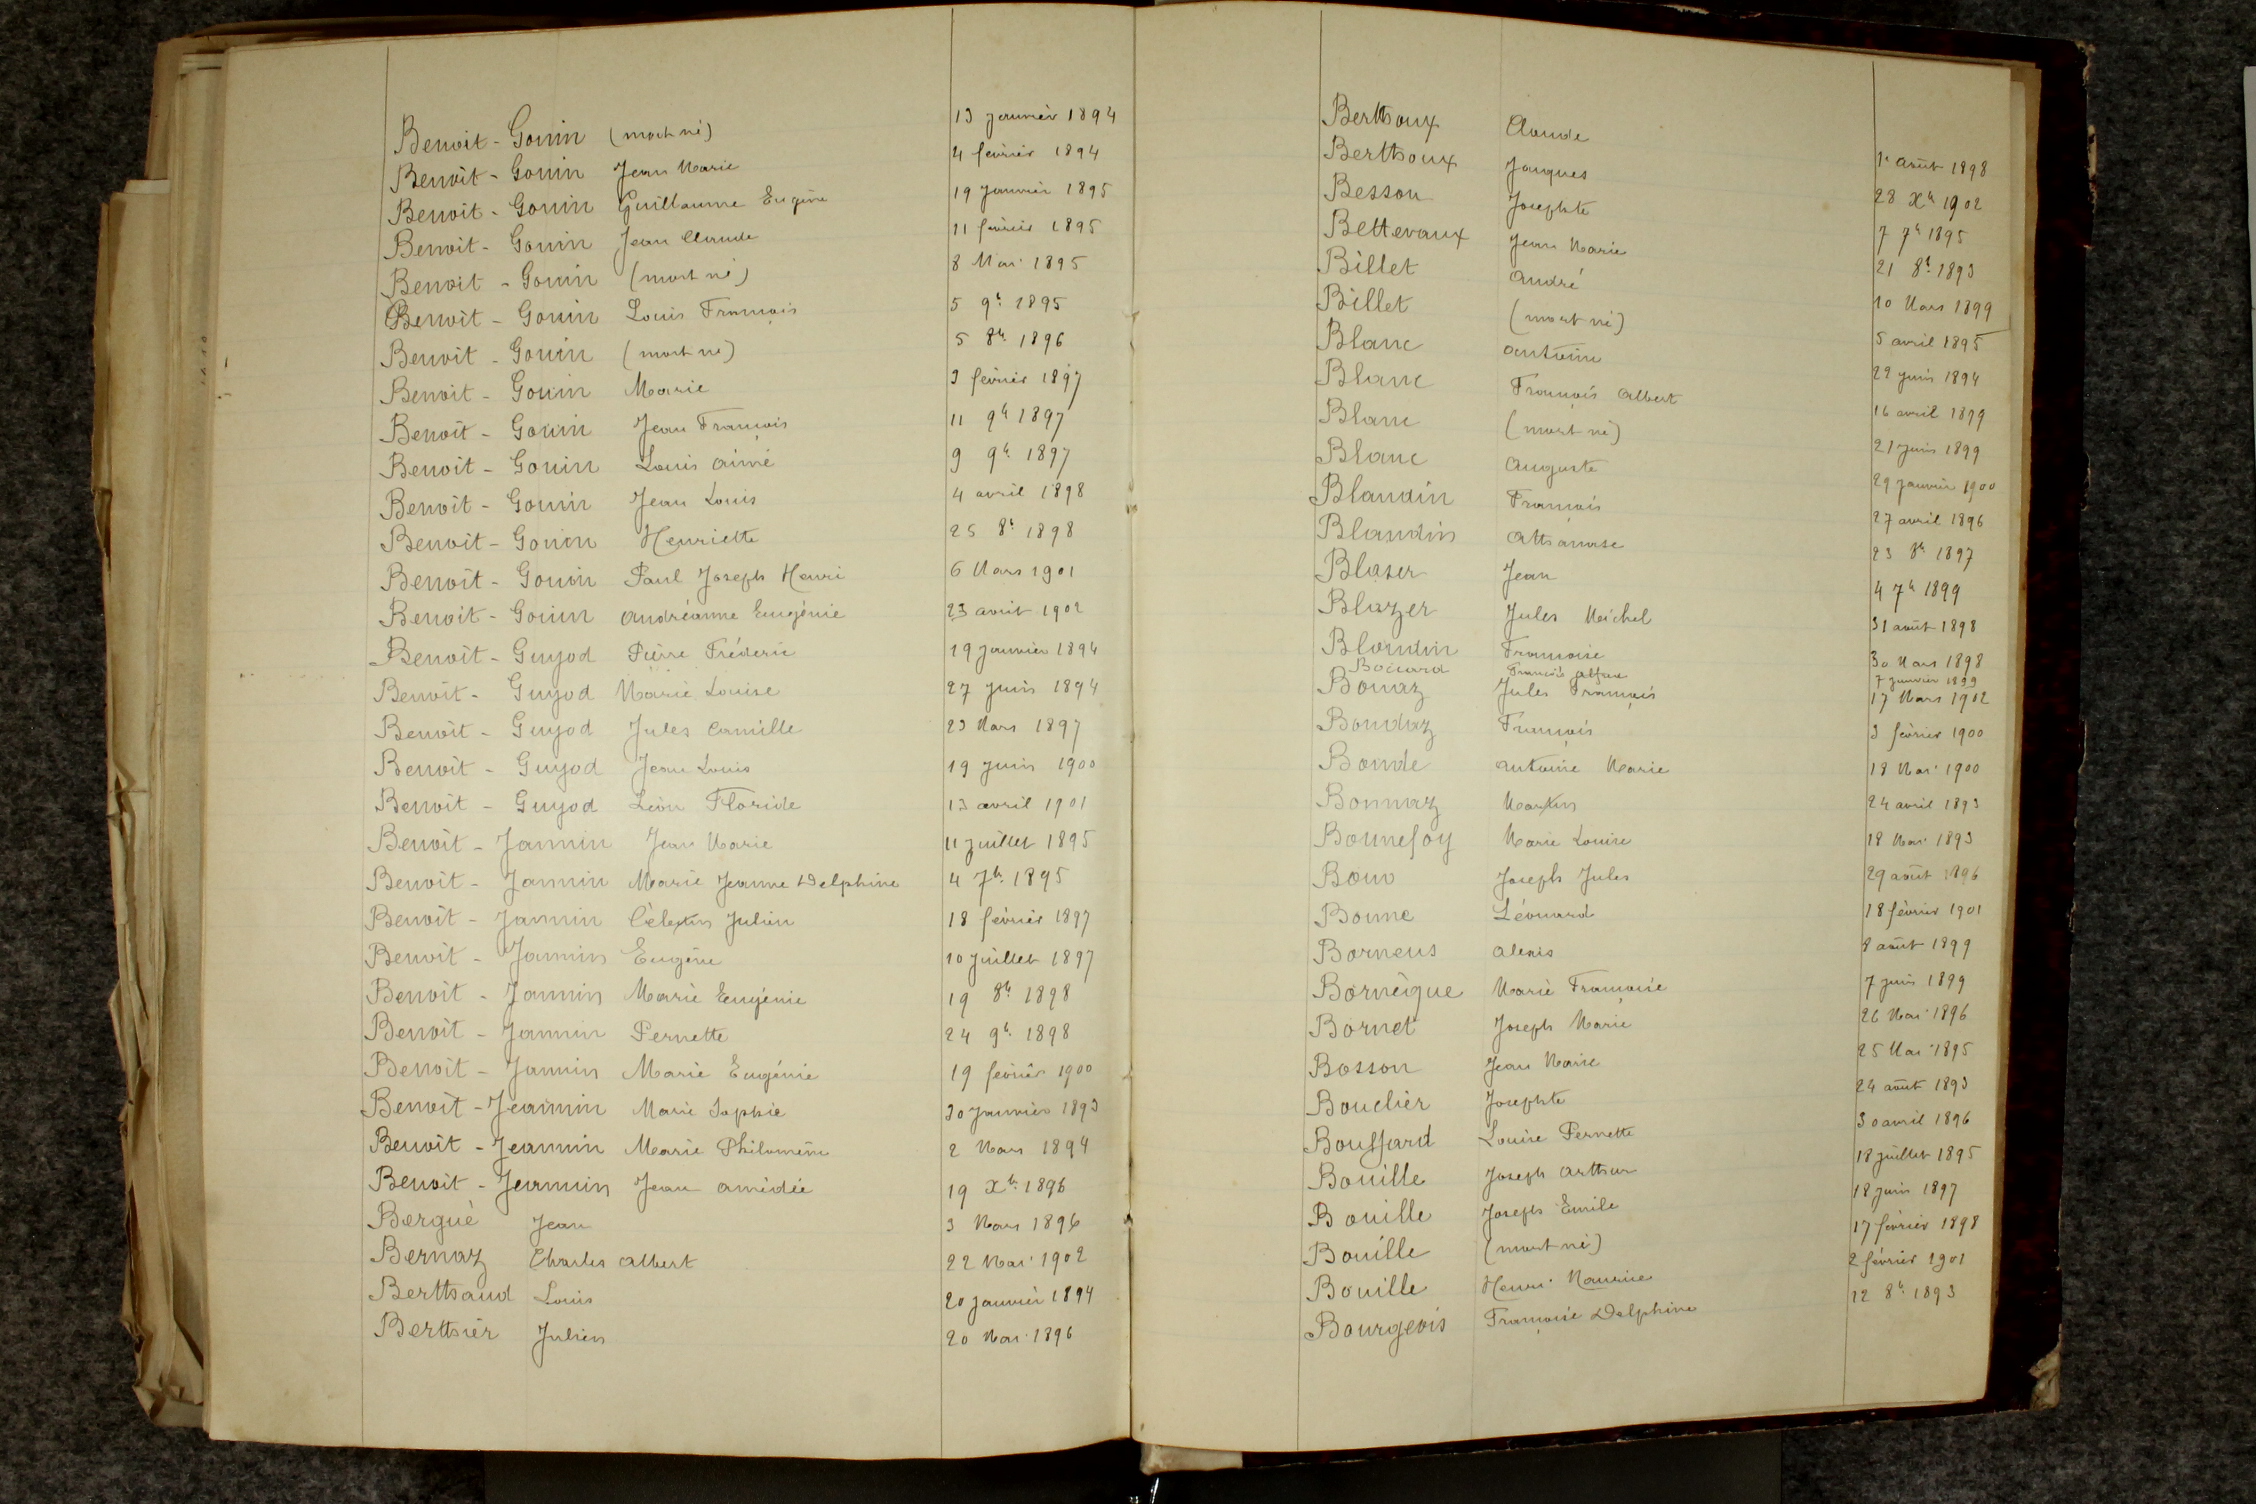 Benoit - Gonin (mort né) 13 janvier 1894
Benoit - Gonin Jean Marie 4 février 1894
Benoit - Gonin Guillaume Eugène 19 janvier 1895
Benoit - Gonin Jean Claude 11 février 1895
Benoit - Gonin (mort né) 8 Mai 1895
Benoit - Gonin Louis François 5 9b 1895
Benoit - Gonin (mort né) 5 8b 1896
Benoit - Gonin Marie 3 février 1897
Benoit - Gonin Jean François 11 9b 1897
Benoit - Gonin Louis aimé 9 9b 1897
Benoit - Gonin Jean Louis 4 avril 1898
Benoit - Gonin Henriette 25 8b 1898
Benoit - Gonin Paul Joseph Henri 6 Mars 1901
Benoit - Gonin andréanne Eugénie 23 août 1902
Benoit - Guyod Pierre Fréderic 19 janvier 1894
Benoit - Guyod Marie Louise 27 juin 1894
Benoit - Guyod Jules Camille 23 Mars 1897
Benoit - Guyod Jean Louis 19 juin 1900
Benoit - Guyod Léon Floride 13 avril 1901
Benoit - Jannin Jean Marie 11 juillet 1895
Benoit - Jannin Marie Jeanne Delphine 4 7b 1895
Benoit - Jannin Célestin Julien 18 février 1897
Benoit - Jannin Eugène 10 juillet 1897
Benoit - Jannin Marie Eugénie 19 8b 1898
Benoit - Jannin Pernette 24 9b 1898
Benoit - Jannin Marie Eugénie 19 février 1900
Benoit - Jeannin Marie Sophie 30 janvier 1893
Benoit - Jeannin Marie Philomène 2 Mars 1894
Benoit - Jeannin Jean amédée 19 Xb 1896
Bergué Jean 3 Mars 1896
Bernaz Charles albert 22 Mai 1902
Berthaud Louis 20 janvier 1894
Berthier Julien 20 Mai 1896
Berthoux Claude 1r août 1898
Berthoux Jacques 28 Xb 1902
Besson Josephte 7 7b 1895
Bettevaux Jean Marie 21 8b 1893
Billet andré 10 Mars 1899
Billet (mort né) 5 avril 1895
Blanc antoine 22 juin 1894
Blanc François albert 16 avril 1899
Blanc (mort né) 21 juin 1899
Blanc auguste 29 janvier 1900
Blandin François 27 avril 1896
Blandin athanase 23 8b 1897
Blaser Jean 4 7b 1899
Blazer Jules Michel 31 août 1898
Blondin Françoise 30 Mars 1898
Bocard 7 janvier 1899
Bouaz Jules François 17 Mars 1902
Bondaz François 3 février 1900
Bonde antoine Marie 18 Mai 1900
Bonnaz Martin 24 avril 1893
Bonnefoy Marie Louise 18 Mai 1893
Joseph Jules 29 août 1896
Bonne Léonard 18 février 1901
Borneus alexis 8 août 1899
Borneique Marie Françoise 7 juin 1899
Bornet Joseph Marie 26 Mai 1896
Bosson Jean Marie 25 Mai 1895
Bouclier Josephte 24 août 1893
Bouffard Louise Pernette 30 avril 1896
Bouille Joseph arthur 18 juillet 1895
Bouille Joseph Emile 18 juin 1897
Bouille (mort né) 17 février 1898
Bouille Henri Maurice 2 février 1901
Bourgeois Françoise Delphine 12 8b 1893